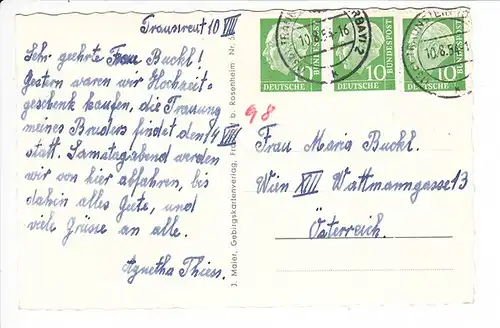 Traunreut 10 VIII
Sehr geehrte Frau Buckl!
Gestern waren wir Hochzeit-
geschenk kaufen, die Trauung
meines Bruders findet den 14 VIII
statt. Samstagabend werden
wir von hier abfahren, bis
dahin alles Gute, und
viele Grüsse an alle.
Agnetha Thiess.
J. Maier, Gebirgskartenverlag, b. Rosenheim Nr.
DEUTSCHE BUNDESPOST
10 DEUTSCHE BUNDESPOST
10 DEUTSCHE BUNDESPOST
10.8.54-16
10.8.54
98
Frau Maria Buckl.
Wien XIII Wattmanngasse 13
Österreich.